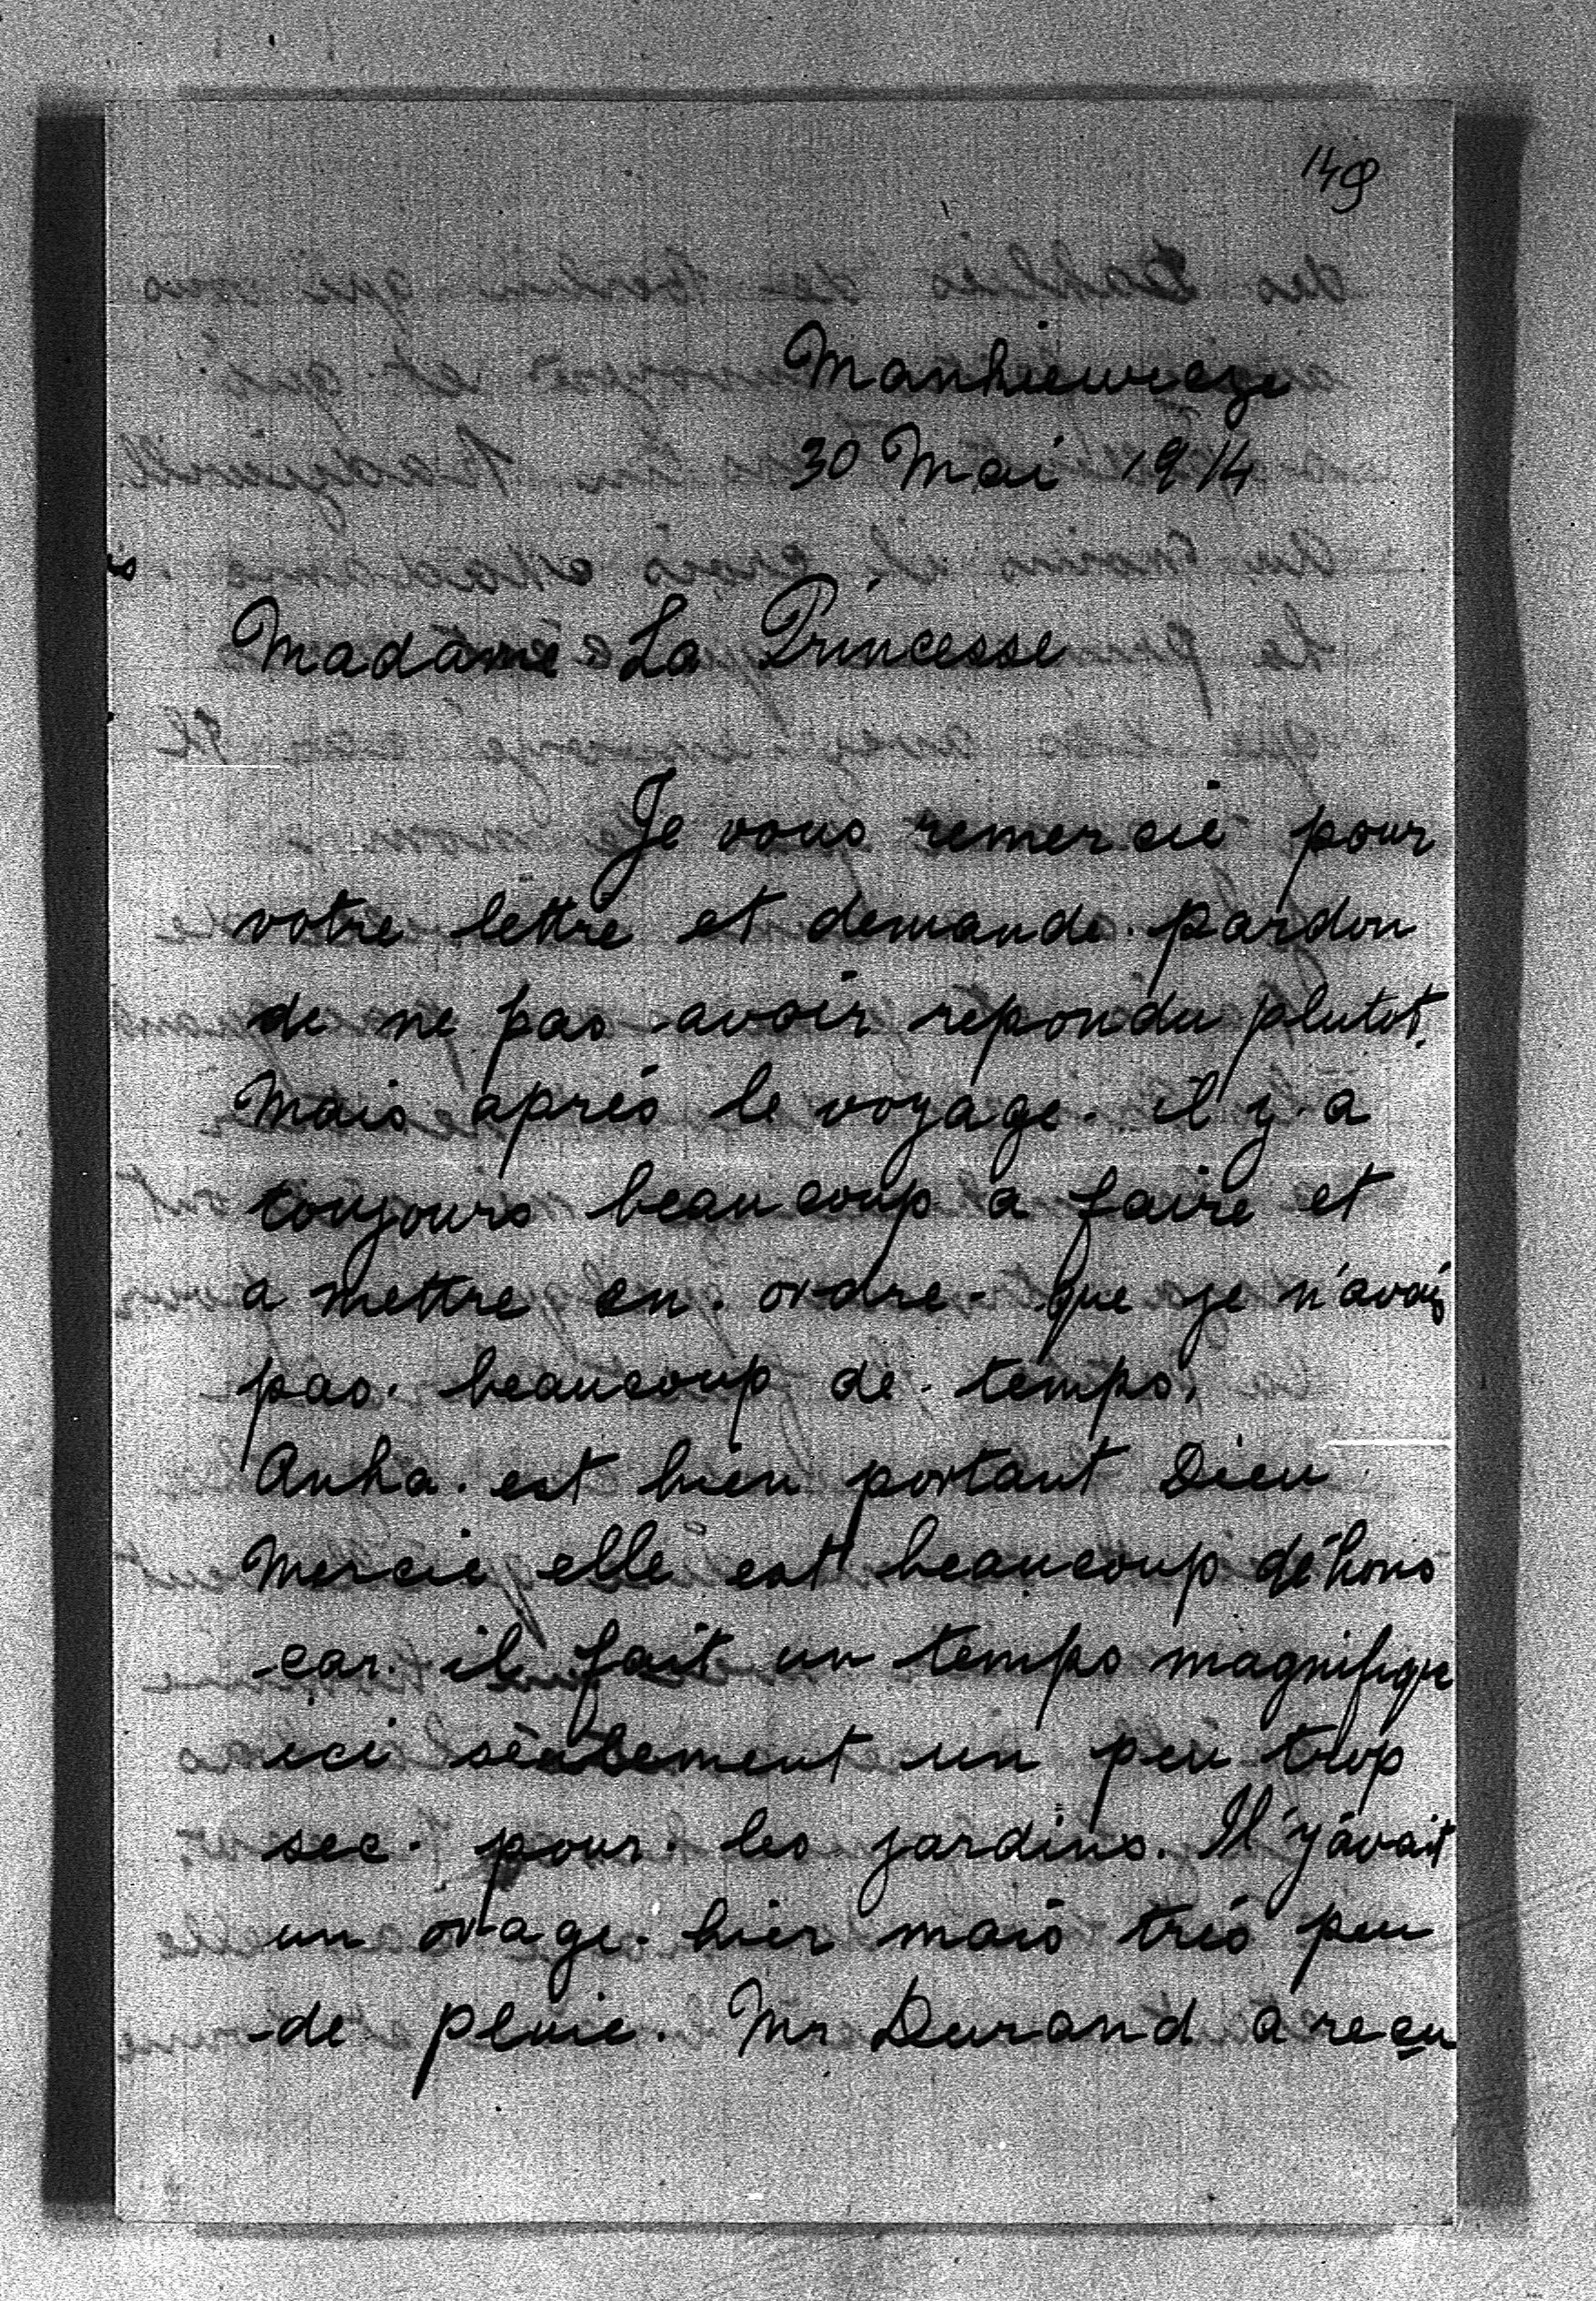 149
Mankiewicze
30 Mai 1914
Madame La Princesse
Je vous remercie pour
votre lettre et demande pardon
de ne pas avoir repondu plutot.
Mais aprés le voyage il y a
toujours beaucoup a faire et
a mettre en ordre que je n'avais
pas beaucoup de temps.
Anka est bien portant Dieu
Mercie elle est beaucoup déhors
car il fait un temps magnifique
ici seulement un peu trop
sec pour les jardins. Il y avait
un orage hier mais trés peu
de pluie. Mr Durand a reçu